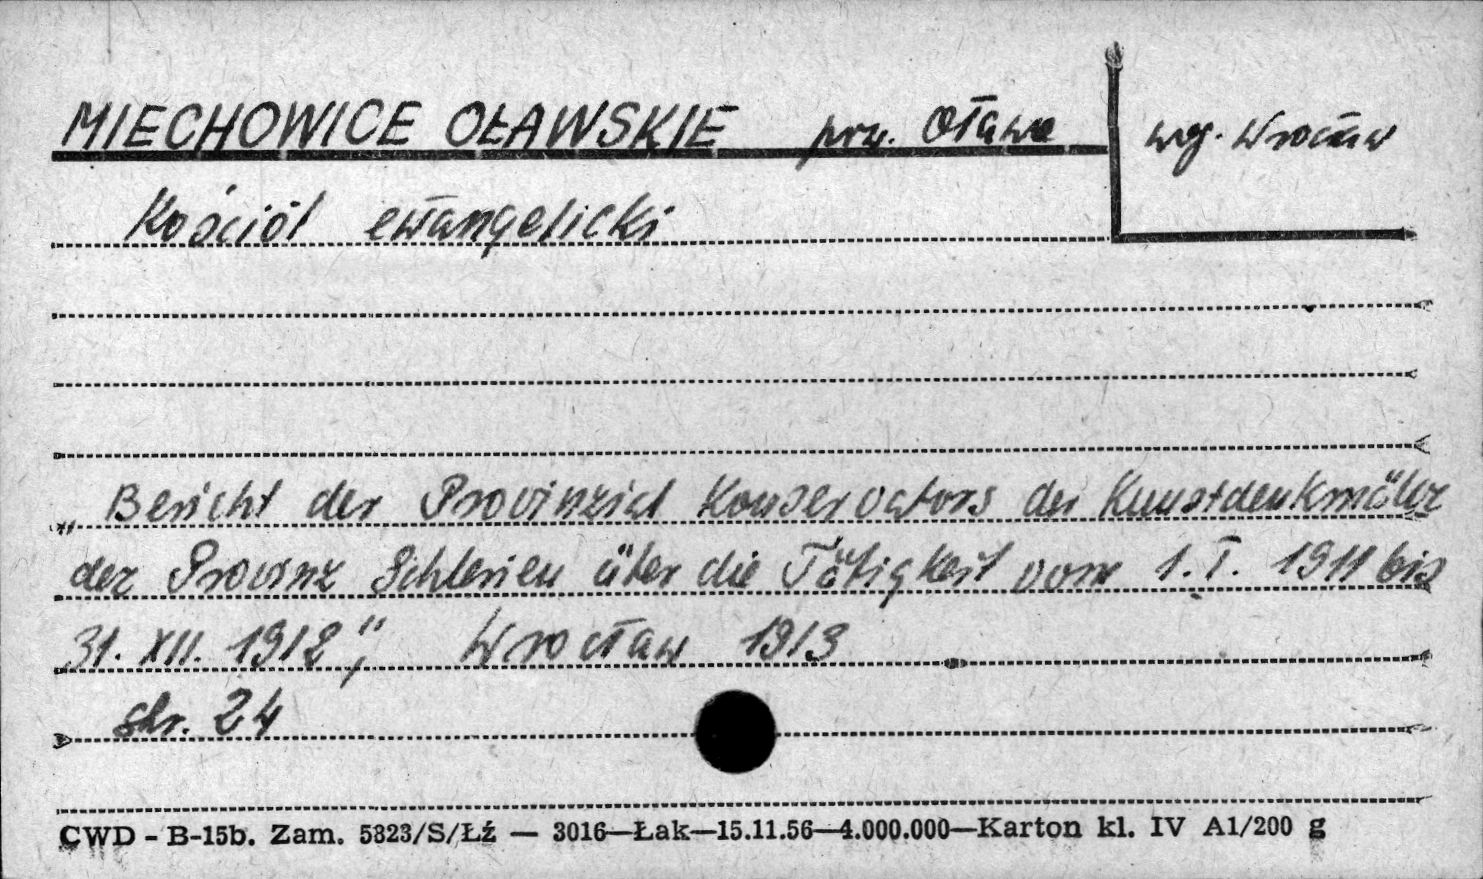 MIECHOWICE OŁAWSKIE pow. Oława woj. Wrocław
Kościół ewangelicki
„Bericht der Provinzial Konservators der Kunstdenkmäler
der Provinz Schlesien über die Tätigkeit vom 1. I. 1911 bis
31. XII. 1912", Wrocław 1913
str. 24
CWD - B-15b. Zam. 5323/S/Łź — 3016—Łak—15.11.56—4.000.000—Karton kl. IV A1/200 g